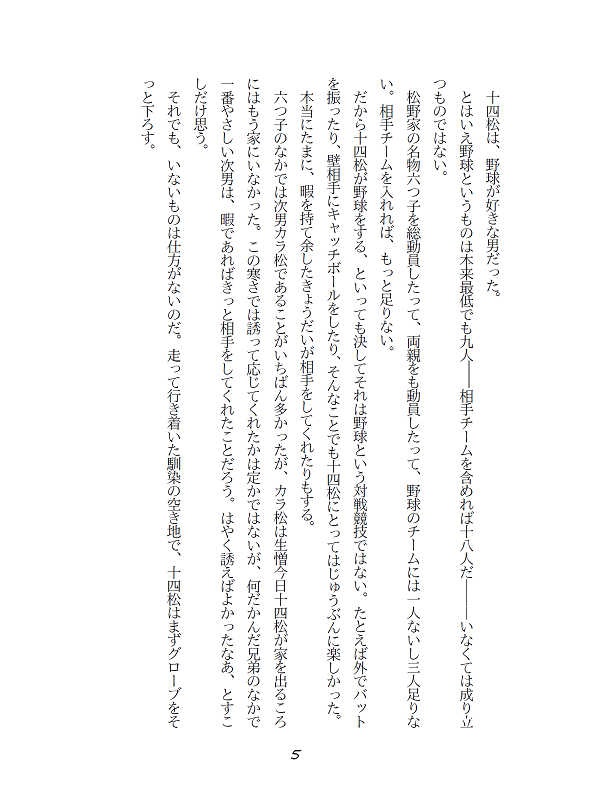 十四松は、野球が好きな男だった。
とはいえ野球というものは本来最低でも九人――相手チームを含めれば十八人だ――いなくては成り立
つものではない。
松野家の名物六つ子を総動員したって、両親をも動員したって、野球のチームには一人ないし三人足りな
い。相手チームを入れれば、もっと足りない。
だから十四松が野球をする、といっても決してそれは野球という対戦競技ではない。たとえば外でバット
を振ったり、壁相手にキャッチボールをしたり、そんなことでも十四松にとってはじゅうぶんに楽しかった。
本当にたまに、暇を持て余したきょうだいが相手をしてくれたりもする。
六つ子のなかでは次男カラ松であることがいちばん多かったが、カラ松は生憎今日十四松が家を出るころ
にはもう家にいなかった。この寒さでは誘って応じてくれたかは定かではないが、何だかんだ兄弟のなかで
一番やさしい次男は、暇であればきっと相手をしてくれたことだろう。はやく誘えばよかったなあ、とすこ
しだけ思う。
それでも、いないものは仕方がないのだ。走って行き着いた馴染の空き地で、十四松はまずグローブをそ
っと下ろす。
5